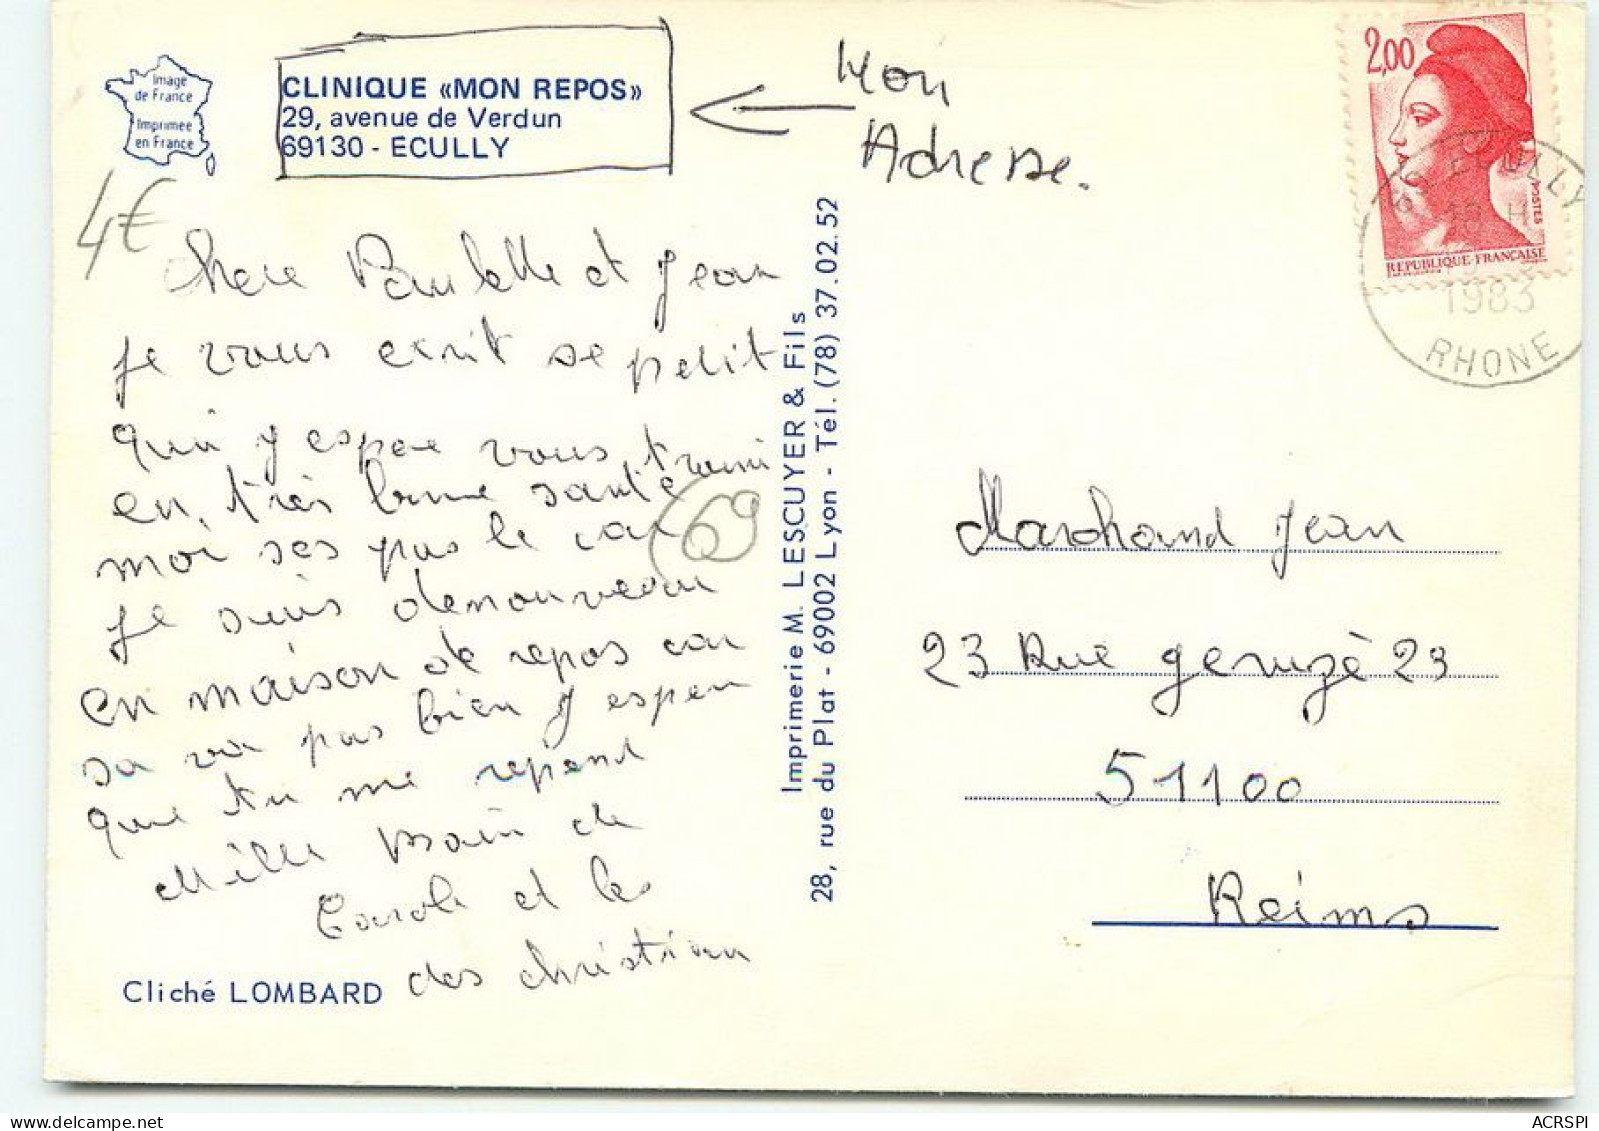 Image
de France
Imprimée
en France
CLINIQUE «MON REPOS»
29, avenue de Verdun
69130 - ECULLY
Mon
Adresse.
2,00
POSTES
REPUBLIQUE FRANÇAISE
69 ECULLY
18 H
1983
RHONE
4€
Chere Paulette et Jean
Je vous ecrit se petit
qui j'espere vous
en, très bonne santé
moi ses pas le cas
Je suis denouveau
en maison de repos car
sa va pas bien J'esper
que tu me repend
Mille de
Carole et les
des christian
69
Imprimerie M. LESCUYER & Fils
28, rue du Plat - 69002 Lyon - Tél. (78) 37.02.52
Marchand Jean
23 Rue geruzè 23
51100
Reims
Cliché LOMBARD
ACRSPI